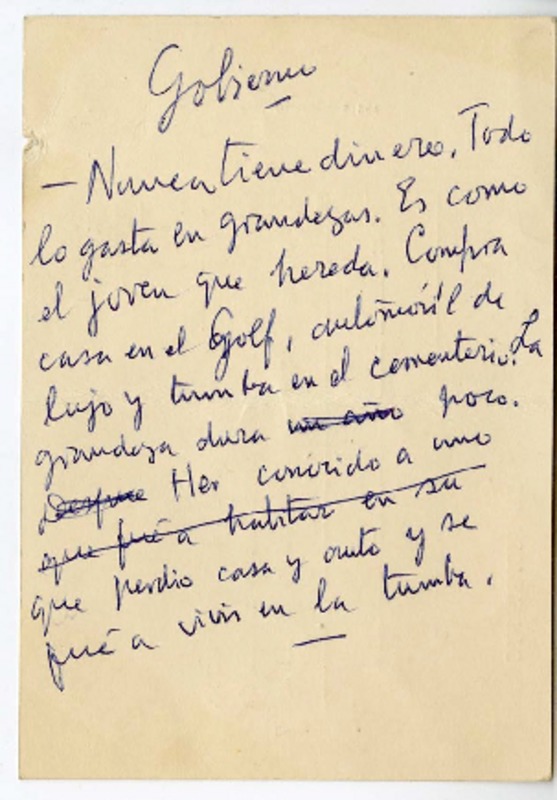 Gobierno
— Nunca tiene dinero. Todo
lo gasta en grandezas. Es como
el joven que hereda. Compra
casa en el Golf, automóvil de
lujo y tumba en el cementerio. La
grandeza dura un año poco.
Despue He conocido a uno
que fué a habitar en su
que perdio casa y auto y se
fué a vivir en la tumba.